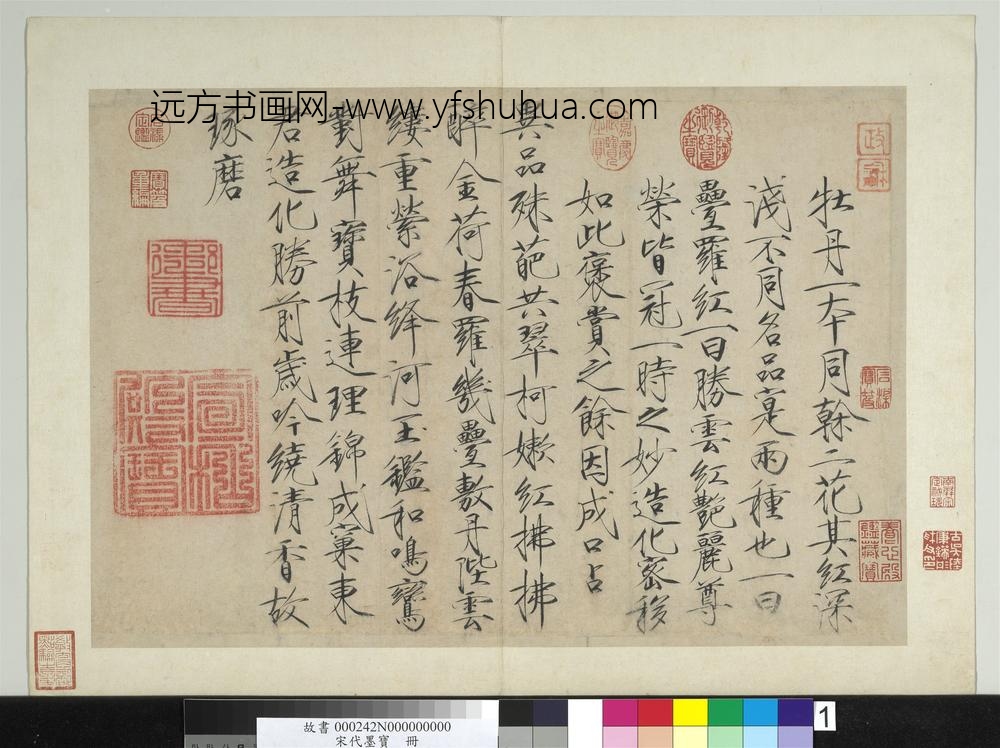 远方书画网-www.yfshuhua.com
牡丹一本同幹二花其紅深
淺不同名品寔兩種也一曰
疊羅紅一曰勝雲紅艷麗尊
榮皆冠一時之妙造化密移
如此褒賞之餘因成口占
異品殊葩共翠柯嫩紅拂拂
醉金荷春羅幾疊敷丹陛雲
縷重縈浴絳河玉鑑和鳴鸞
對舞寶枝連理錦成窠東
君造化勝前歲吟繞清香故
琢磨
故書 000242N000000000
宋代墨寶 冊
1